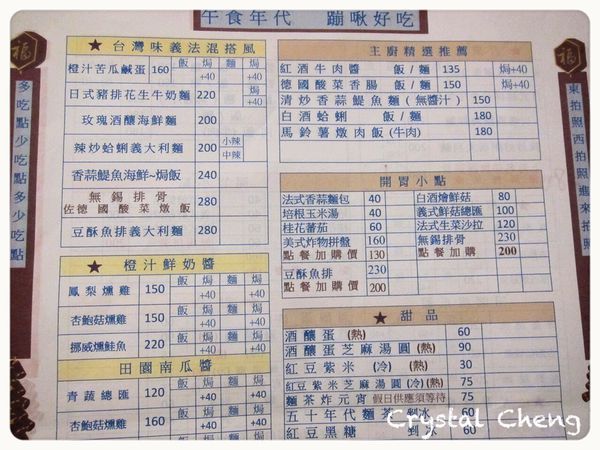 午食年代 蹦啾好吃
福
多吃點少吃點多少吃點
★ 台灣味義法混搭風
橙汁苦瓜鹹蛋 160 飯 焗+40 麵 焗+40
日式豬排花生牛奶麵 220 焗+40
玫瑰酒釀海鮮麵 200
辣炒蛤蜊義大利麵 200 小辣 中辣
香蒜鯷魚海鮮~焗飯 240
無錫排骨
佐德國酸菜燉飯 280
豆酥魚排義大利麵 280
★ 橙汁鮮奶醬
鳳梨燻雞 150 飯 焗+40 麵 焗+40
杏鮑菇燻雞 150 飯 焗+40 麵 焗+40
挪威燻鮭魚 220 飯 焗+40 麵 焗+40
田園南瓜醬
青蔬總匯 120 飯 焗+40 麵 焗+40
杏鮑菇燻雞 160 飯 焗+40 麵 焗+40
主廚精選推薦
紅酒牛肉醬 飯/麵 135 焗+40
德國酸菜香腸 飯/麵 150 焗+40
清炒香蒜鯷魚麵(無醬汁) 150
白酒蛤蜊 飯/麵 180
馬鈴薯燉肉飯(牛肉) 180
開胃小點
法式香蒜麵包 40 白酒燴鮮菇 80
培根玉米湯 40 義式鮮菇總匯 100
桂花蕃茄 60 法式生菜沙拉 120
美式炸物拼盤 160 無錫排骨 230
點餐加購價 130 點餐加購 200
豆酥魚排 230
點餐加購價 200
★ 甜品
酒釀蛋(熱) 60
酒釀蛋芝麻湯圓(熱) 90
紅豆紫米 (冷) (熱) 30
紅豆紫米芝麻湯圓(冷)(熱) 75
麵茶炸元宵 假日供應須等待 75
五十年代麵茶 剉冰 60
紅豆黑糖 剉冰 60
福
東拍照西拍照進來拍照
Crystal Cheng